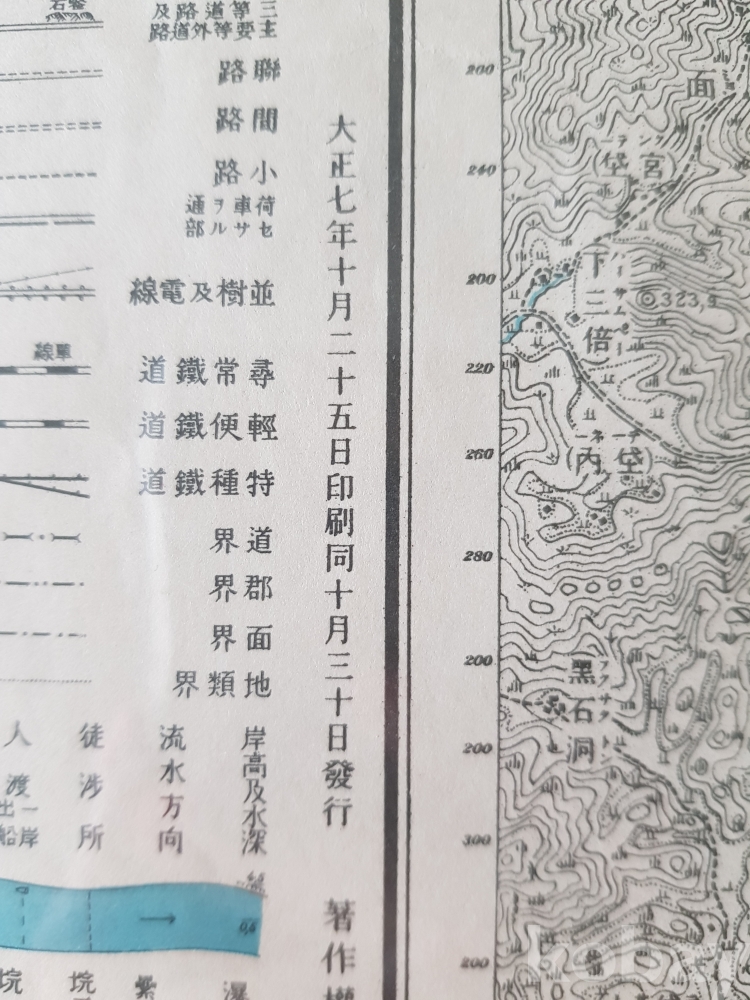 三等道路及
主要等外道路
聯路
間路
小路
荷車ヲ通
セサル部
並樹及電線
單線
尋常鐵道
輕便鐵道
特種鐵道
道界
郡界
面界
地類界
岸高及水深
流水方向
徒涉所
人渡
一岸
出船
0,6
大正七年十月二十五日印刷同十月三十日發行
著作權
200
240
200
220
260
280
200
200
300
200
面
宮垈
下三倍
323,9
(內垈)
黑石洞